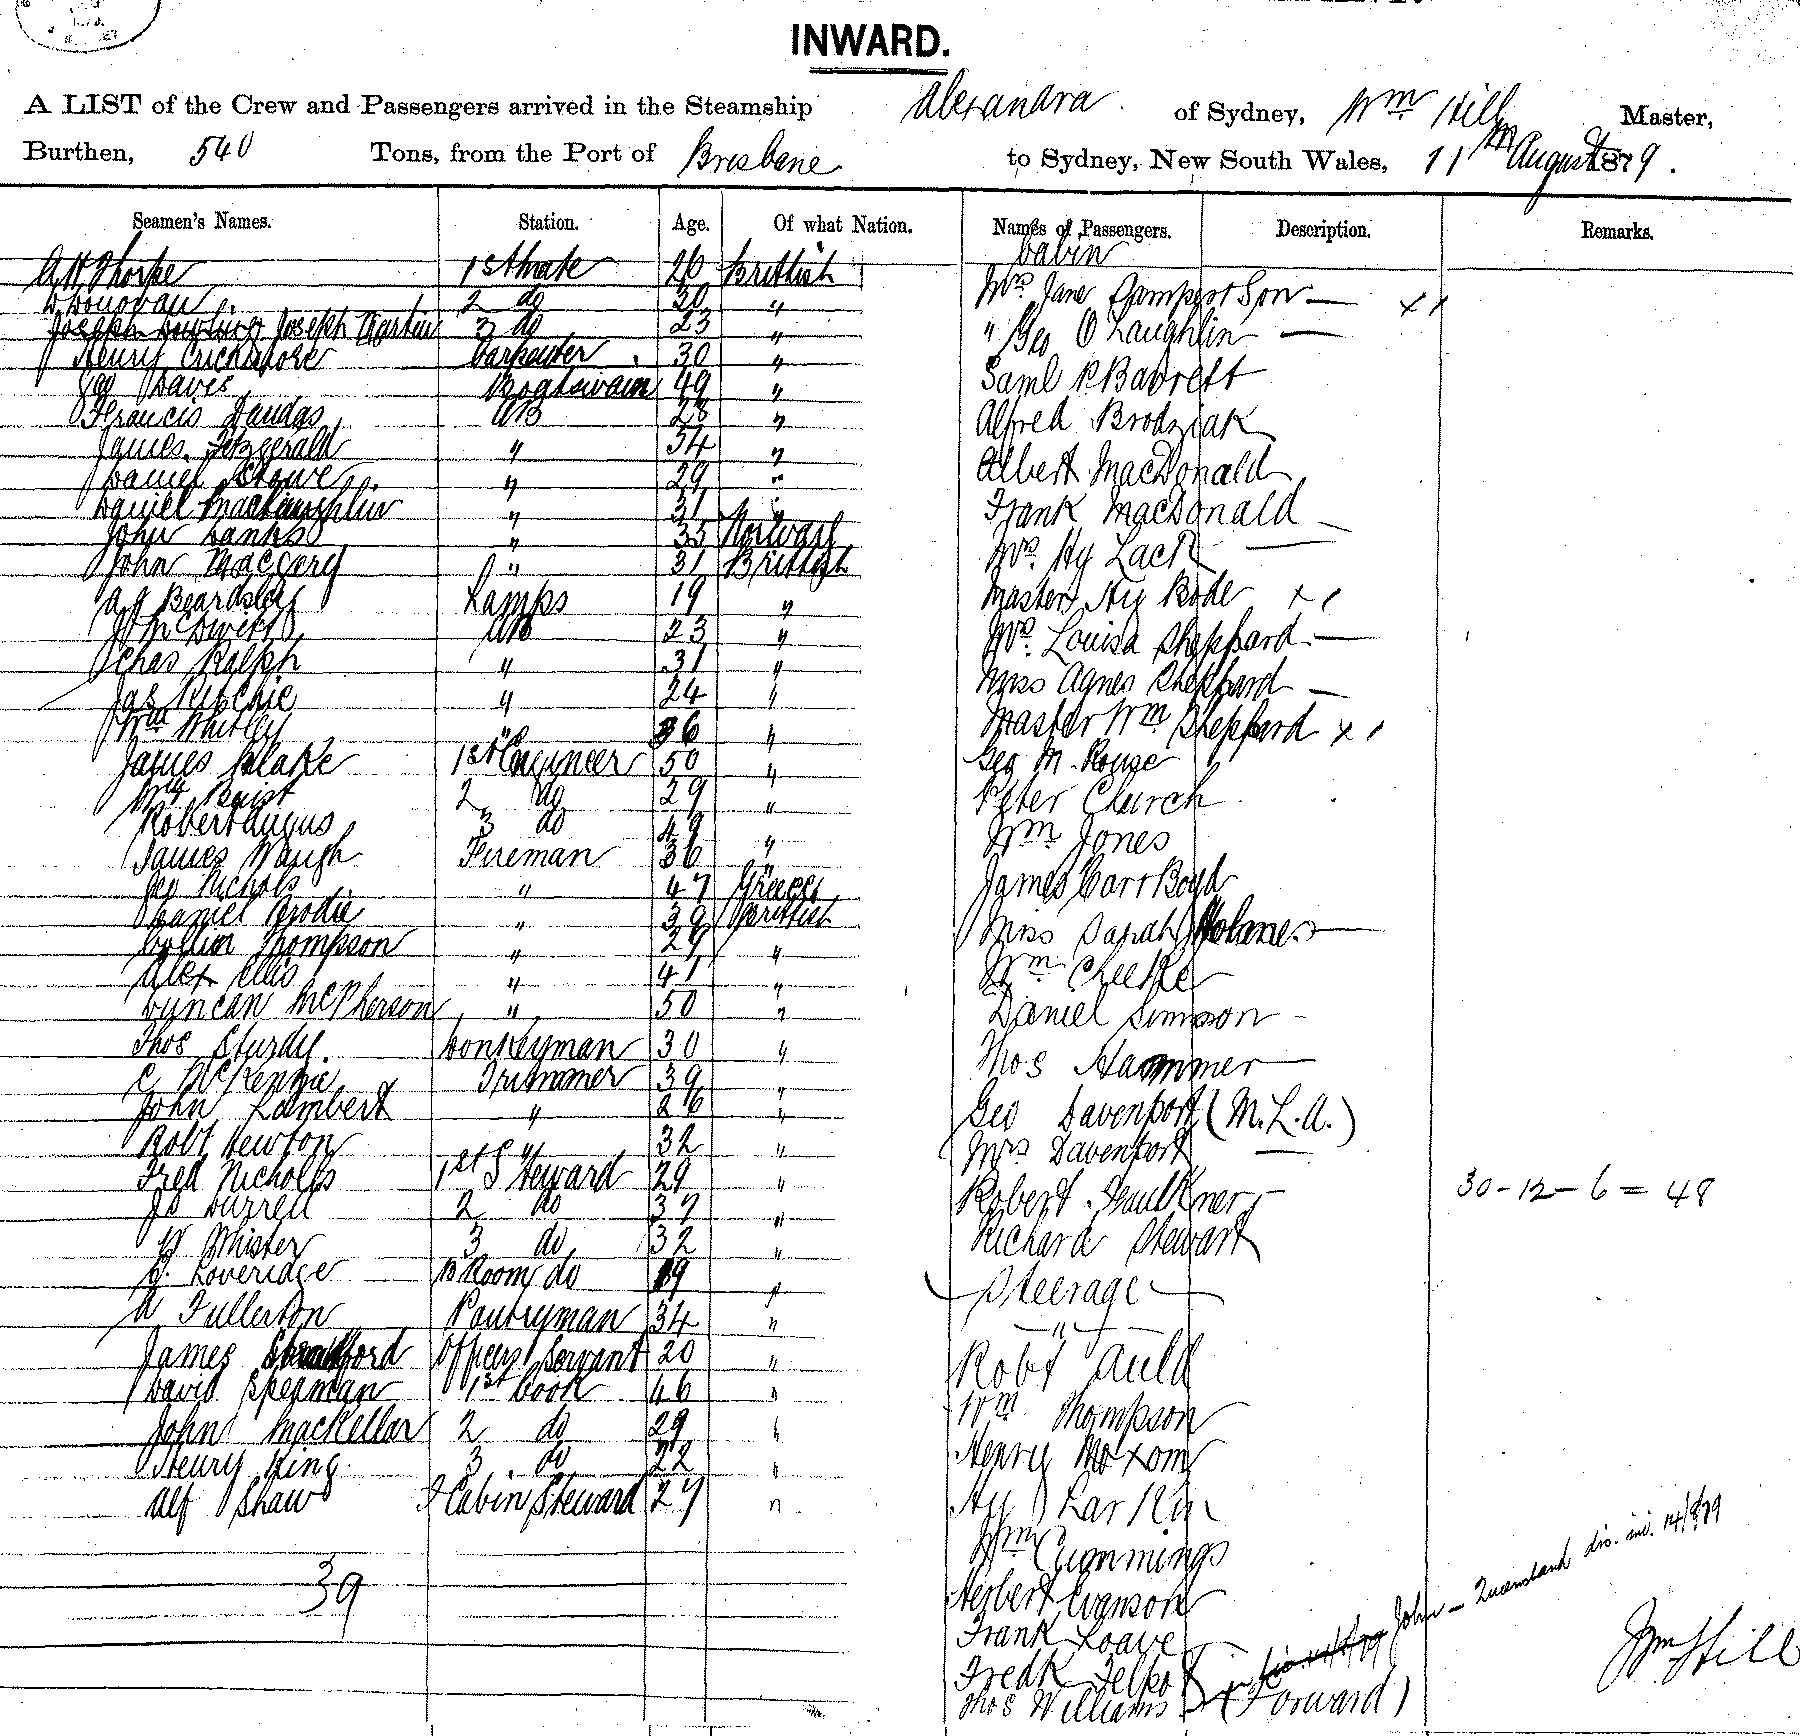 INWARD.
A LIST of the Crew and Passengers arrived in the Steamship Alexandra of Sydney, Wm Hill Master,
Burthen, 540 Tons, from the Port of Brisbane to Sydney, New South Wales, 11th August 1879.
Seamen's Names. Station. Age. Of what Nation. Names of Passengers. Description. Remarks.
Cabin
A H Thorpe 1st Mate 26 British
D Donovan 2 do 30 "
Joseph Martin 3 do 23 "
Henry Carpenter 30 "
Geo Daves Boatswain 49 "
Francis AB 28 "
James Fitzgerald " 54 "
Daniel Stowe " 29 "
Daniel MacLaughlin " 31 "
John Banks " 35 Norway
John Maccgery " 31 British
A J Beardsley Lamps 19 "
AB 23 "
Chas Ralph " 31 "
Jas Ritchie " 24 "
Wm Whitley " 36 "
James Blake 1st Engineer 50 "
Wm 2 do 29 "
Robert Angus 3 do 49 "
James Waugh Fireman 36 "
Geo Nichols " 47 Greece
Daniel Brodie " 39 British
Collin Thompson " 29 "
Alex Ellis " 41 "
Duncan McPherson " 50 "
Thos Sturdy. Donkeyman 30 "
C McKenzie Trimmer 39 "
John Lambert " 26 "
Robt Newton " 32 "
Fred Nicholls 1st Steward 29 "
Jo Durrell 2 do 37 "
Mister 3 do 32 "
J. Loveridge B Room do 19 "
A Fullerton Pantryman 34 "
James Officers Servant 20 "
David Spearman 1st Cook 46 "
John MacKellar 2 do 29 "
Henry King 3 do 22 "
Alf Shaw F Cabin Steward 27 "
39
Mrs Jane Son — x 1
" Geo O Laughlin —
Saml P Barrett
Alfred Brodziak
Albert MacDonald
Frank MacDonald
Mrs Hy Lack —
Master Hy Bode x 1
Mrs Louisa Sheppard —
Miss Agnes Sheppard —
Master Wm Sheppard x 1
Geo M. Rouse
Peter Church
Wm Jones
James Carr Boyd
Miss Sarah Holmes —
Wm Cheeke
Daniel Simpson
Thos Hammer
Geo Davenport (M.L.A.)
Mrs Davenport —
Robert Faulkner
30-12-6 = 48
Richard Stewart
Steerage
— " —
Robt Auld
Wm Thompson
Henry Moxom
Hy Larkin
Wm Cummings
Herbert Evanson
Frank Loave
Fredk
Thos Williams (Forward)
John — Queensland dis. ind. 14/8/79
Wm Hill